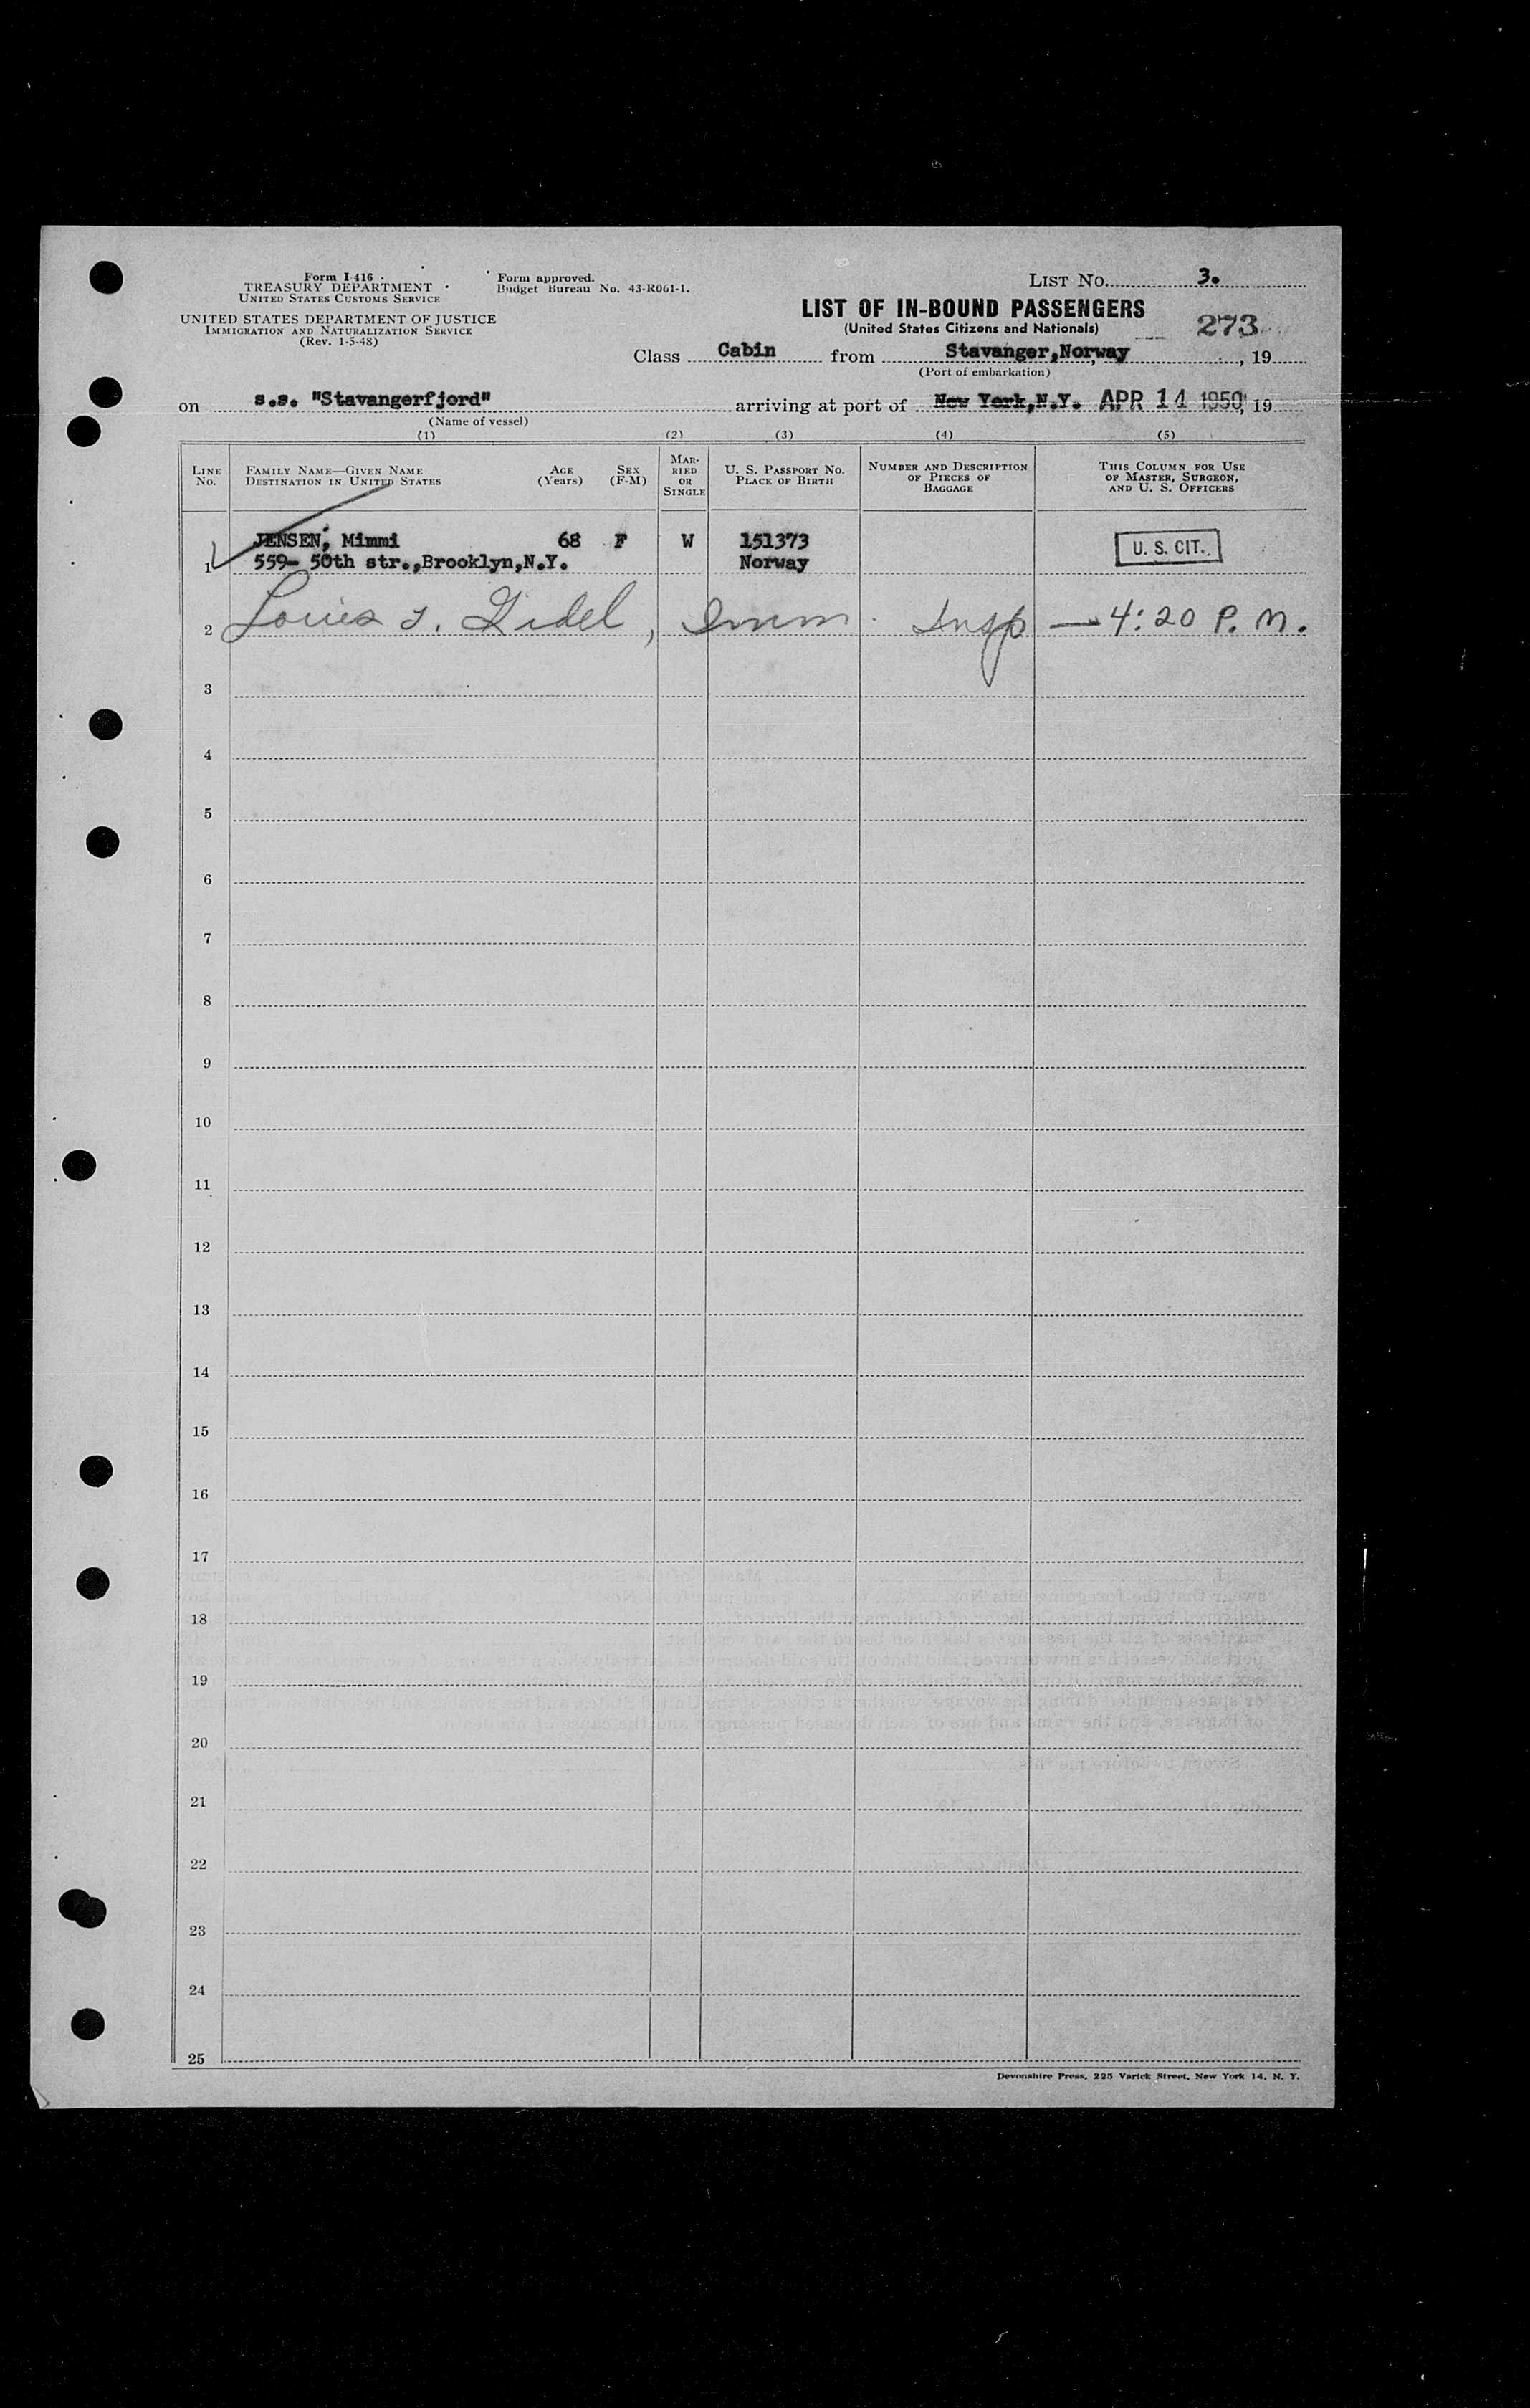 Form I-416
TREASURY DEPARTMENT
UNITED STATES CUSTOMS SERVICE
UNITED STATES DEPARTMENT OF JUSTICE
IMMIGRATION AND NATURALIZATION SERVICE
(Rev. 1-5-48)
Form approved.
Budget Bureau No. 43-R061-1.
LIST No. 3.
LIST OF IN-BOUND PASSENGERS
(United States Citizens and Nationals)
273
Class Cabin from Stavanger,Norway, 19
(Port of embarkation)
on s.s. "Stavangerfjord" arriving at port of New York,N.Y. APR 14 1950, 19
(Name of vessel)
(1) (2) (3) (4) (5)
LINE No.
FAMILY NAME—GIVEN NAME
DESTINATION IN UNITED STATES
AGE (Years)
SEX (F-M)
MARRIED OR SINGLE
U. S. PASSPORT No.
PLACE OF BIRTH
NUMBER AND DESCRIPTION OF PIECES OF BAGGAGE
THIS COLUMN FOR USE OF MASTER, SURGEON, AND U. S. OFFICERS
JENSEN, Mimmi 68 F W 151373 U. S. CIT.
1 559- 50th str.,Brooklyn,N.Y. Norway
2 Louis Imm. Insp — 4:20 P. M.
3
4
5
6
7
8
9
10
11
12
13
14
15
16
17
18
19
20
21
22
23
24
25
Devonshire Press, 225 Varick Street, New York 14, N. Y.